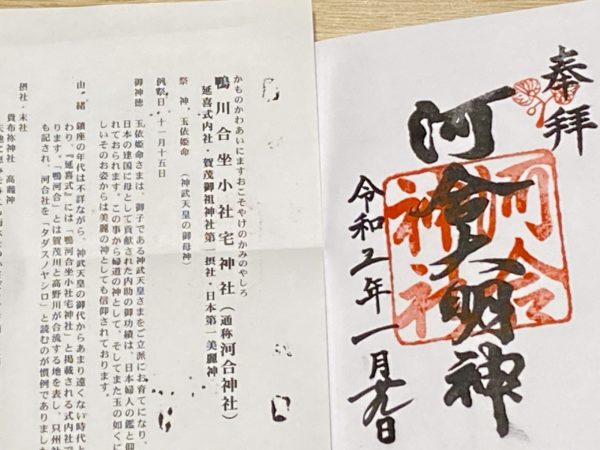 奉拝
河合大明神
河合
神社
令和二年一月九日
かものかわあいにますおこそやけのかみのやしろ
鴨川合坐小社宅神社（通称河合神社）
延喜式内社・賀茂御祖神社第一摂社・日本第一美麗神
祭　神、玉依姫命　（神武天皇の御母神）
例祭日　十一月十五日
御神徳　玉依姫命さまは、御子である神武天皇さまをご立派にお育てになり、
日本の建国に母として貢献された内助の御功績は、日本婦人の鑑と仰
れておられます。この事から婦道の神として、そしてまた玉の如くに
しいそのお姿からは美麗の神としても信仰されております。
由　緒　鎮座の年代は不詳ながら、神武天皇の御代からあまり遠くない時代と
わり、『延喜式』には「鴨河合坐小社宅神社」と掲載される式内社で
ります。「鴨河合」とは賀茂川と高野川が合流する地を表し、只州社
も記され、河合社を「タダスノヤシロ」と読むのが慣例でありました
摂社・末社
貴布祢神社　高龗神